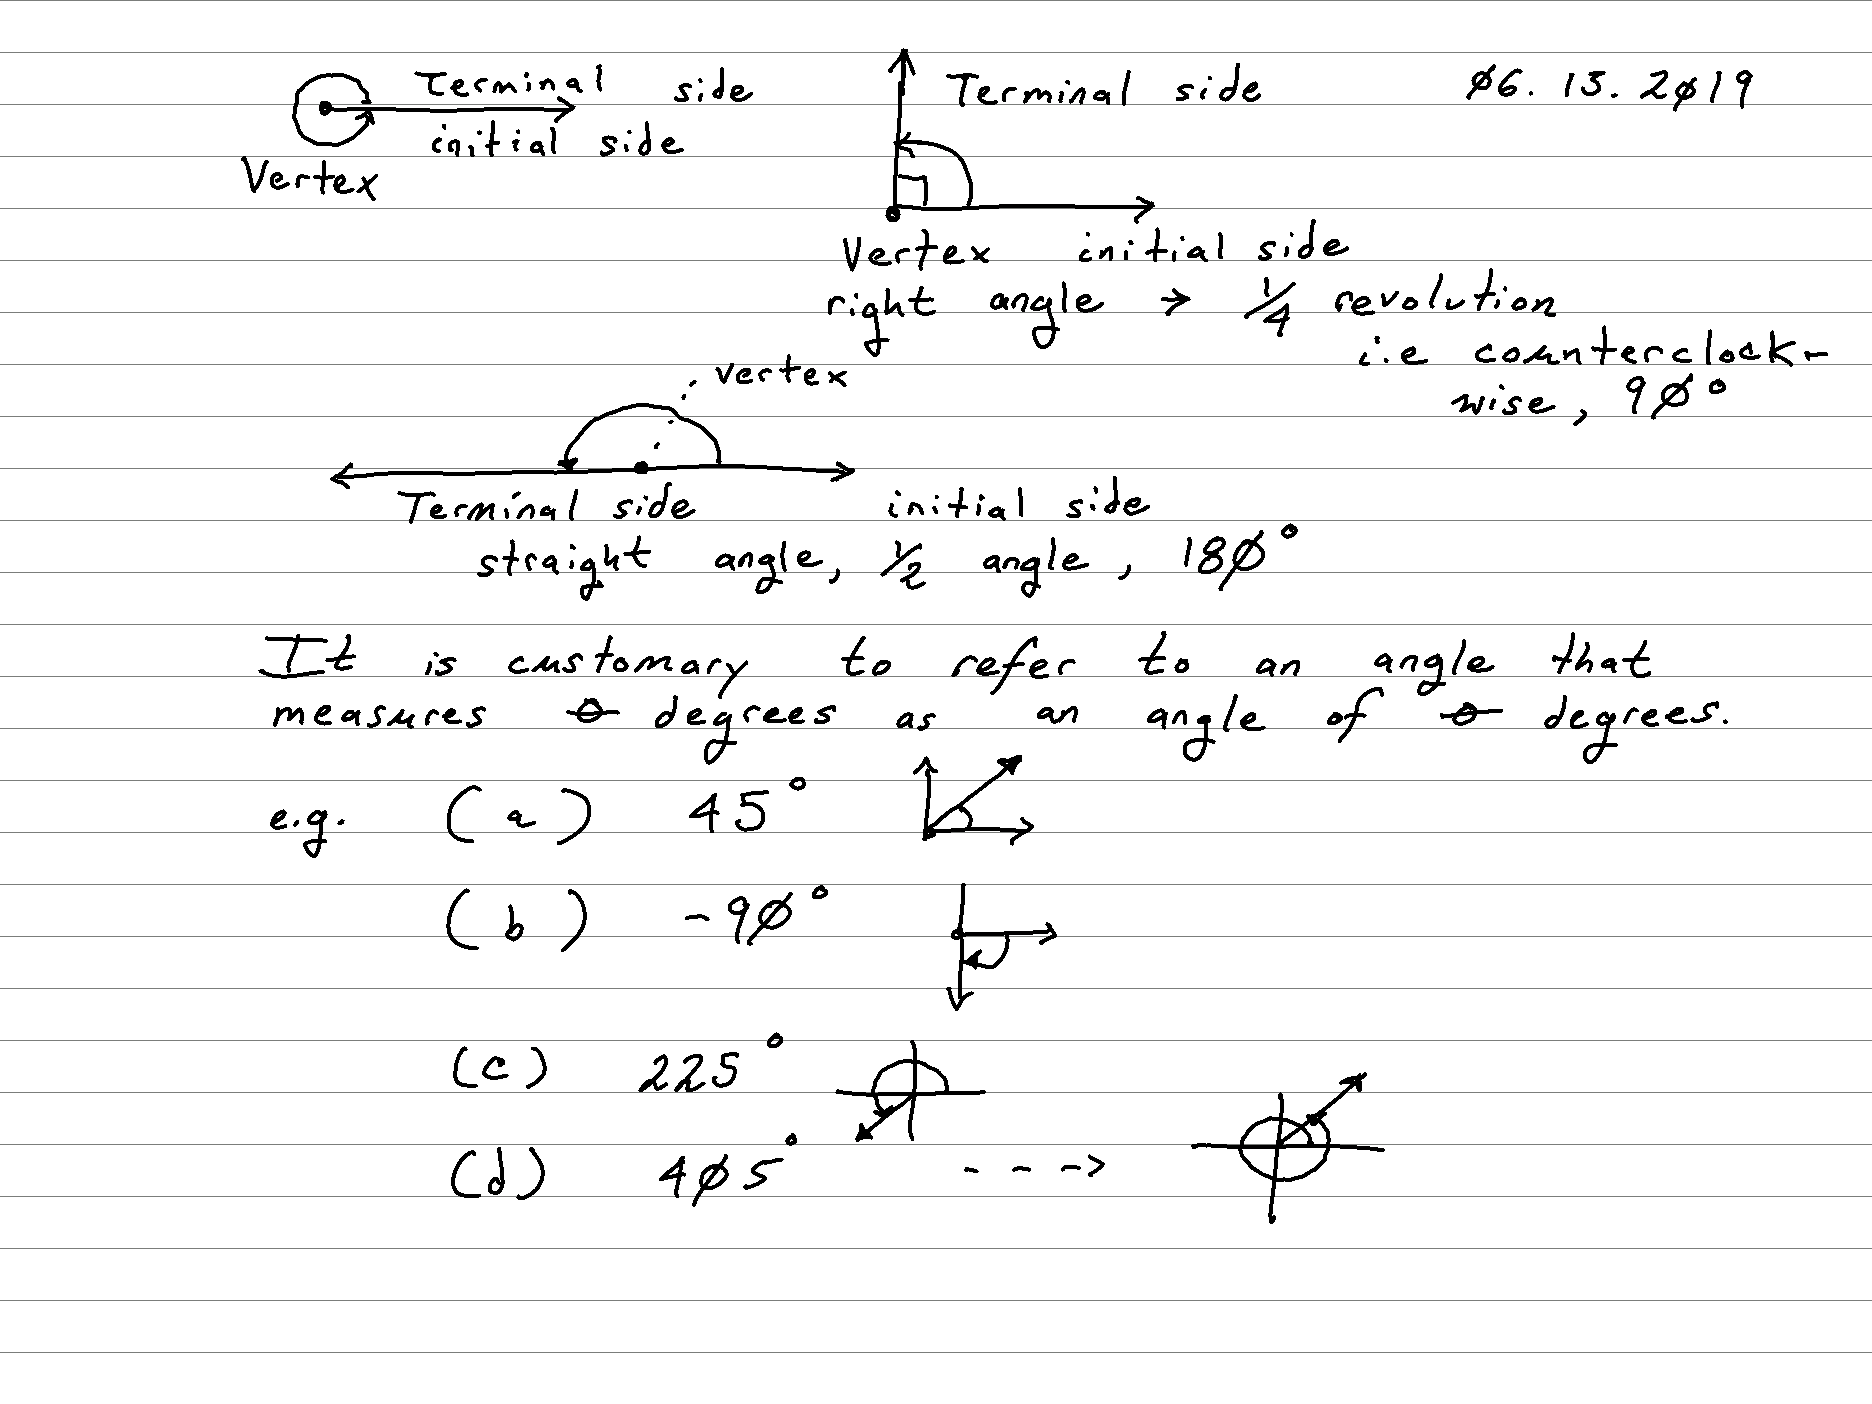 Terminal side
initial side
Vertex
Terminal side
06.13.2019
Vertex initial side
right angle → 1/4 revolution
i.e counterclock-
wise, 90°
vertex
Terminal side initial side
straight angle, 1/2 angle, 180°
It is customary to refer to an angle that
measures θ degrees as an angle of θ degrees.
e.g. (a) 45°
(b) -90°
(c) 225°
(d) 405° --->